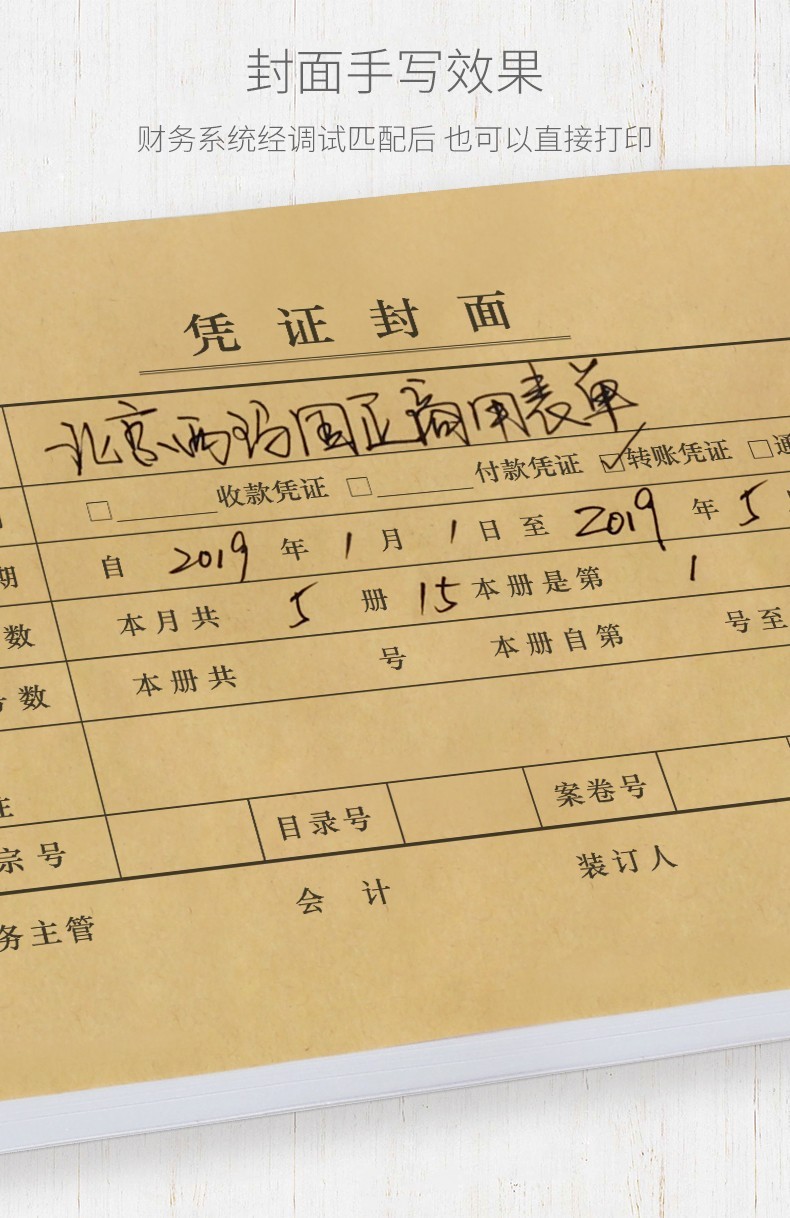 封面手写效果
财务系统经调试匹配后 也可以直接打印
凭证封面
北京西玛国正商用表单
□______收款凭证 □______付款凭证 ☑转账凭证 □通
期 自 2019 年 1 月 1 日 至 2019 年 5
数 本月共 5 册 15 本册是第 1
号数 本册共 号 本册自第 号至
注
宗号 目录号 案卷号
务主管 会计 装订人